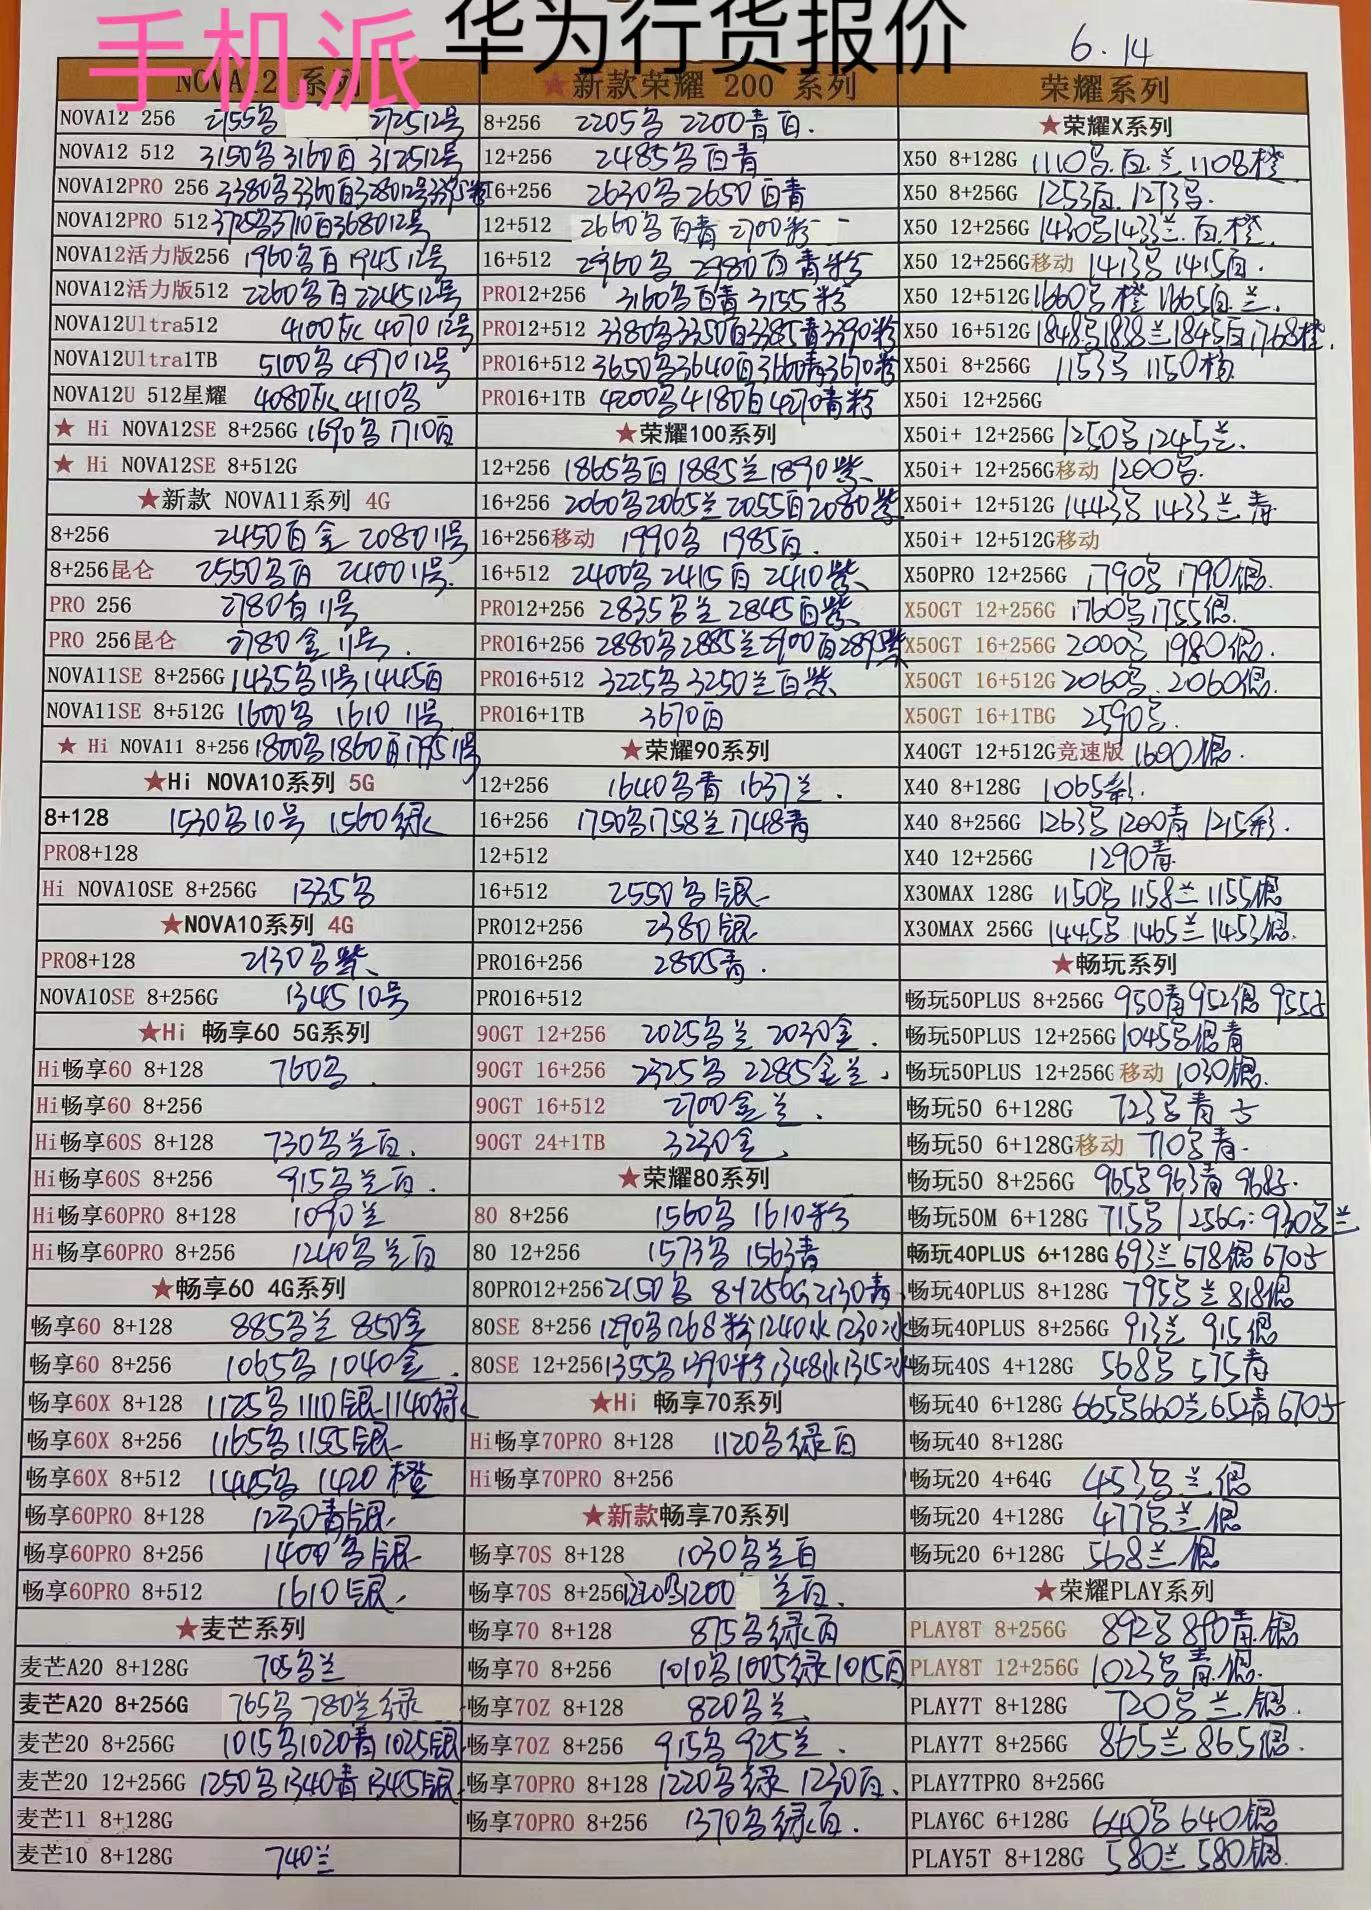 手机派 华为行货报价
6.14
NOVA12 系列
NOVA12 256 2155名 272512号
NOVA12 512 3150名3160白 312512号
NOVA12PRO 256 3380名3360白328012号3395粉
NOVA12PRO 512 3725名3710白368012号
NOVA12活力版256 1960名白 194512号
NOVA12活力版512 2260名白 224512号
NOVA12Ultra512 4100灰 407012号
NOVA12Ultra1TB 5100名 497012号
NOVA12U 512星耀 4080灰 4110名
★ Hi NOVA12SE 8+256G 1690名 1710白
★ Hi NOVA12SE 8+512G
★新款 NOVA11系列 4G
8+256 2450白金 208011号
8+256昆仑 2550名白 240011号.
PRO 256 2780白11号
PRO 256昆仑 2780金11号.
NOVA11SE 8+256G 1435名11号1445白
NOVA11SE 8+512G 1600名 1610 11号
★ Hi NOVA11 8+256 1800名1860白179511号
★Hi NOVA10系列 5G
8+128 1530名10号 1560绿
PRO8+128
Hi NOVA10SE 8+256G 1335名
★NOVA10系列 4G
PRO8+128 2130名紫
NOVA10SE 8+256G 1345 10号
★Hi 畅享60 5G系列
Hi畅享60 8+128 760名.
Hi畅享60 8+256
Hi畅享60S 8+128 730名兰白.
Hi畅享60S 8+256 915名兰白.
Hi畅享60PRO 8+128 1090兰
Hi畅享60PRO 8+256 1240名兰白
★畅享60 4G系列
畅享60 8+128 885名兰 850金
畅享60 8+256 1065名1040金.
畅享60X 8+128 1125名1110银1140绿
畅享60X 8+256 1165名1155银
畅享60X 8+512 1445名 1420 橙
畅享60PRO 8+128 1230青银
畅享60PRO 8+256 1400名银
畅享60PRO 8+512 1610银.
★麦芒系列
麦芒A20 8+128G 705名兰
麦芒A20 8+256G 765名 780兰绿
麦芒20 8+256G 1015名1020青1025银
麦芒20 12+256G 1250名1340青1345银
麦芒11 8+128G
麦芒10 8+128G 740兰
★新款荣耀 200 系列
8+256 2205名 2200青白.
12+256 2485名白青
16+256 2630名2650白青
12+512 2660名白青 2700粉
16+512 2960名 2980白青粉
PRO12+256 3160名白青 3155粉
PRO12+512 3380名3350白3385青3390粉
PRO16+512 3650名3640白3660青3670粉
PRO16+1TB 4200名4180白4270青粉
★荣耀100系列
12+256 1865名白1885兰1890紫
16+256 2060名2065兰2055白2080紫
16+256移动 1990名 1985白.
16+512 2400名2415白2410紫
PRO12+256 2835名兰2845白紫
PRO16+256 2880名2885兰2900白2895紫
PRO16+512 3225名3250兰白紫
PRO16+1TB 3670白
★荣耀90系列
12+256 1640名青 1637兰.
16+256 1750名1758兰1748青
12+512
16+512 2550名银
PRO12+256 2380银
PRO16+256 2805青.
PRO16+512
90GT 12+256 2025名兰 2030金.
90GT 16+256 2325名 2285金兰.
90GT 16+512 2700金兰.
90GT 24+1TB 3230金
★荣耀80系列
80 8+256 1560名1610粉
80 12+256 1573名1563青
80PRO12+256 2150名 8+256G2130青
80SE 8+256 1290名1268粉1240水1230冰
80SE 12+256 1355名1390粉1348水1315冰
★Hi 畅享70系列
Hi畅享70PRO 8+128 1120名绿白
Hi畅享70PRO 8+256
★新款畅享70系列
畅享70S 8+128 1030名兰白
畅享70S 8+256 1220名1200 兰白.
畅享70 8+128 875名绿白
畅享70 8+256 1010名1005绿1015白
畅享70Z 8+128 820名兰
畅享70Z 8+256 915名 925兰.
畅享70PRO 8+128 1220名绿 1230白.
畅享70PRO 8+256 1370名绿白.
荣耀系列
★荣耀X系列
X50 8+128G 1110名.白.兰 1108橙
X50 8+256G 1253白. 1273名.
X50 12+256G 1430名1433兰.白.橙.
X50 12+256G移动 1413名1415白.
X50 12+512G 1660名橙 1665白兰.
X50 16+512G 1848名1838兰1845白1768橙.
X50i 8+256G 1153名 1150粉
X50i 12+256G
X50i+ 12+256G 1250名1245兰.
X50i+ 12+256G移动 1200名.
X50i+ 12+512G 1443名1433兰青
X50i+ 12+512G移动
X50PRO 12+256G 1790名1790银.
X50GT 12+256G 1760名1755银.
X50GT 16+256G 2000名1980银.
X50GT 16+512G 2060名.2060银.
X50GT 16+1TBG 2590名.
X40GT 12+512G竞速版 1600银.
X40 8+128G 1065彩.
X40 8+256G 1263名1200青1215彩.
X40 12+256G 1290青
X30MAX 128G 1150名1158兰1155银
X30MAX 256G 1445名1465兰1453银.
★畅玩系列
畅玩50PLUS 8+256G 950青952银955
畅玩50PLUS 12+256G 1045名银青
畅玩50PLUS 12+256G移动 1030银.
畅玩50 6+128G 723名青
畅玩50 6+128G移动 710名青.
畅玩50 8+256G 965名963青968
畅玩50M 6+128G 715名/256G:930名兰
畅玩40PLUS 6+128G 693兰678银670
畅玩40PLUS 8+128G 795名兰818银
畅玩40PLUS 8+256G 913兰 915银
畅玩40S 4+128G 568名 575青
畅玩40 6+128G 665名660兰652青670
畅玩40 8+128G
畅玩20 4+64G 453名兰银
畅玩20 4+128G 477名兰银
畅玩20 6+128G 568兰银
★荣耀PLAY系列
PLAY8T 8+256G 892名890青.银
PLAY8T 12+256G 1023名青.银.
PLAY7T 8+128G 720名兰银.
PLAY7T 8+256G 865兰865银.
PLAY7TPRO 8+256G
PLAY6C 6+128G 640名640银
PLAY5T 8+128G 580兰580银.